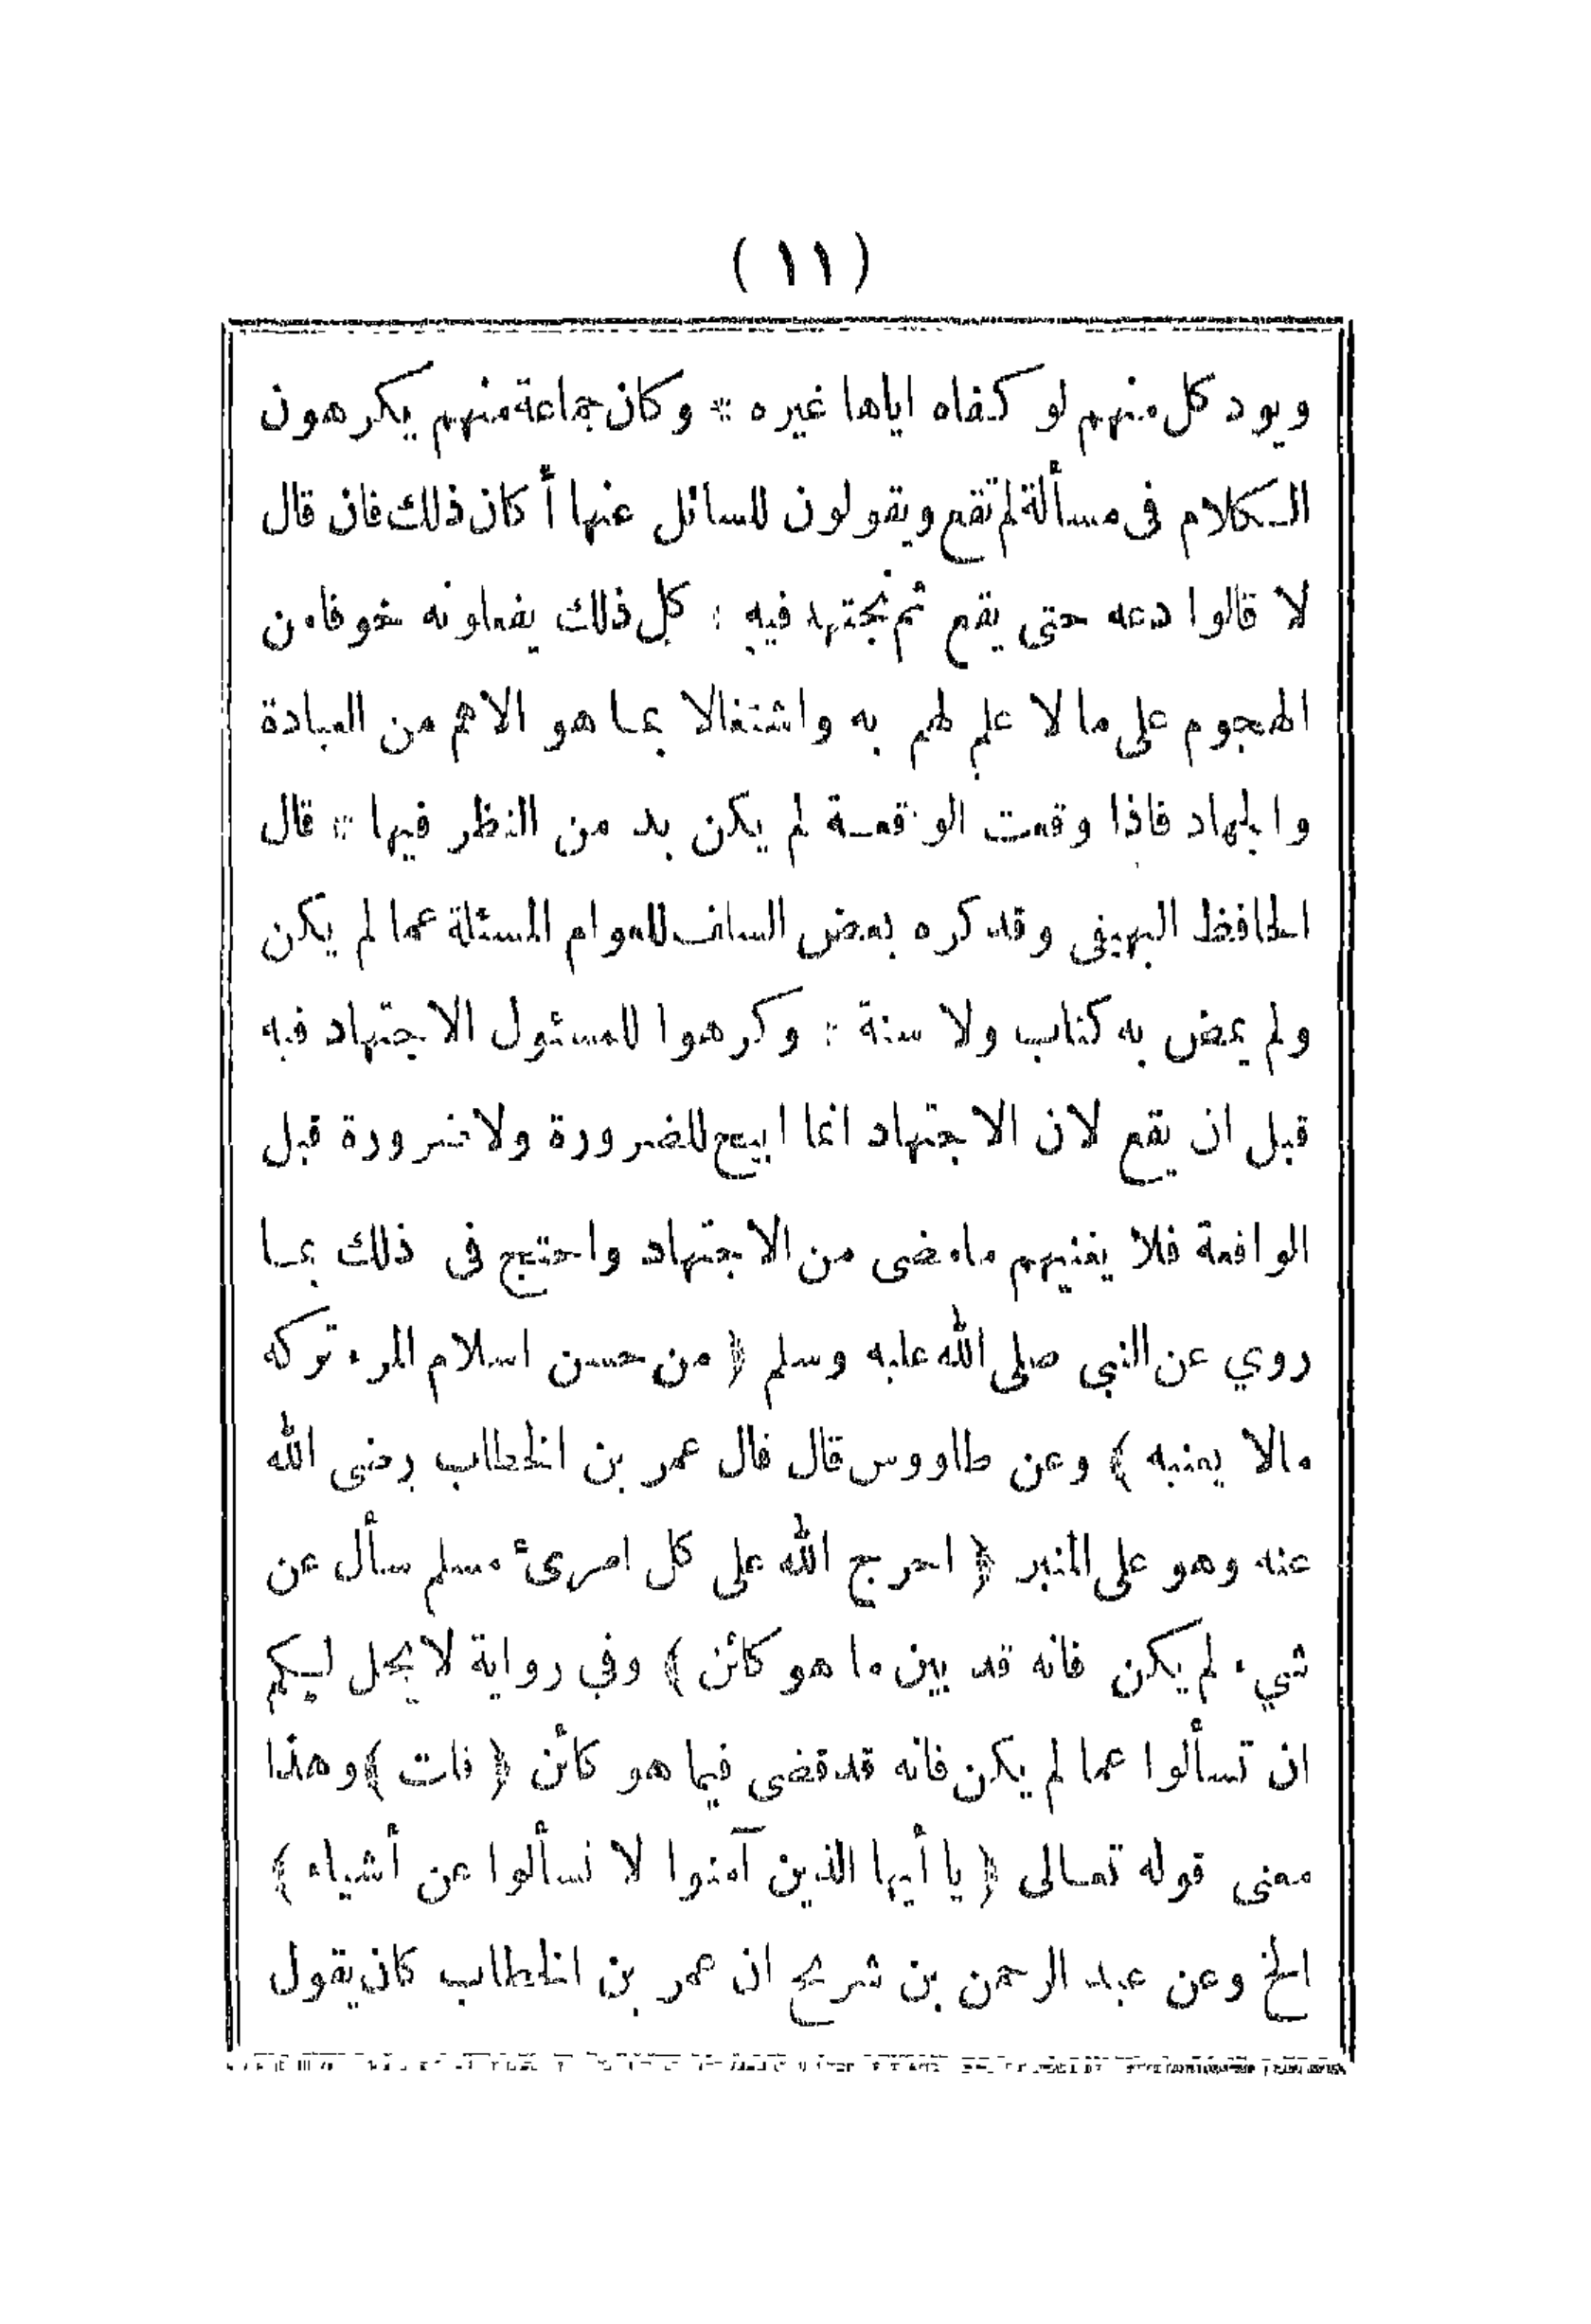 ( ١١ )
ويود كل منهم لو كفاه اياها غيره * وكان جماعة منهم يكرهون
الكلام فى مسألة لم تقع ويقولون للسائل عنها أ كان ذلك فان قال
لا قالوا دعه حتى يقع ثم نجتهد فيه : كل ذلك يفعلونه خوفا من
الهجوم على ما لا علم لهم به واشتغالا بما هو الاهم من العبادة
والجهاد فاذا وقعت الواقعة لم يكن بد من النظر فيها * قال
الحافظ البيهقى وقد كره بعض السلف للعوام المسئلة عما لم يكن
ولم يمض به كتاب ولا سنة : وكرهوا للمسئول الاجتهاد فيه
قبل ان يقع لان الاجتهاد انما ابيح للضرورة ولا ضرورة قبل
الواقعة فلا يغنيهم ما مضى من الاجتهاد واحتج فى ذلك بما
روي عن النبى صلى الله عليه وسلم ﴿ من حسن اسلام المرء تركه
مالا يعنيه ﴾ وعن طاووس قال قال عمر بن الخطاب رضى الله
عنه وهو على المنبر ﴿ احرج الله على كل امرئ مسلم سأل عن
شيء لم يكن فانه قد بين ما هو كائن ﴾ وفي رواية لا يحل لكم
ان تسألوا عما لم يكن فانه قد قضى فيما هو كائن ﴿ قلت ﴾ وهذا
معنى قوله تعالى ﴿ يا أيها الذين آمنوا لا تسألوا عن أشياء ﴾
الخ وعن عبد الرحمن بن شريح ان عمر بن الخطاب كان يقول